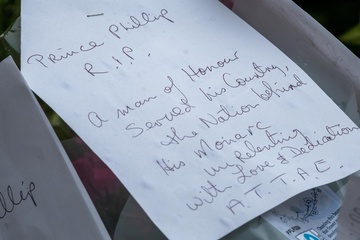 Prince Phillip
R.I.P.
A man of Honour
Served his Country,
the Nation behind
His Monarc
unRelenting
with Love & Dedication
A.T.T.A.E.
llip